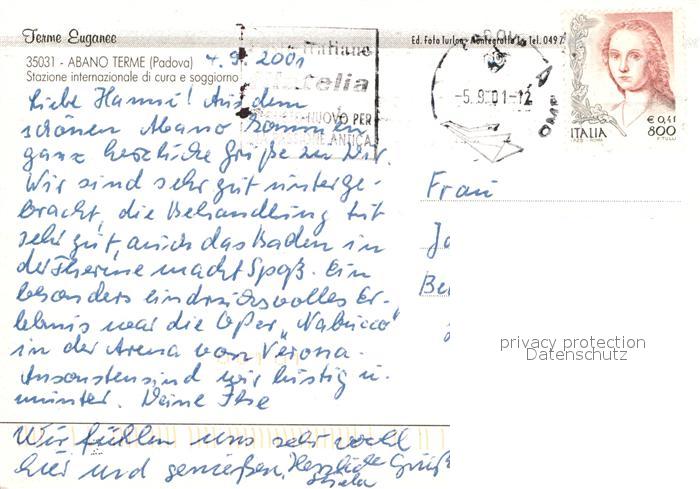 Terme Euganee
Ed. Foto Turlon - Monte Tel. 049 7
35031 - ABANO TERME (Padova) 4.9.2001
Stazione internazionale di cura e soggiorno
Liebe Hanni! Aus dem
schönen Abano kommen
ganz herzliche Grüße zu Dir.
Wir sind sehr gut unterge-
bracht, die Behandlung tut
sehr gut, auch das Baden in
der Therme macht Spaß. Ein
besonders eindrucksvolles Er-
lebnis war die Oper „Nabucco"
in der Arena von Verona.
Ansonsten sind wir lustig u.
munter. Deine Ilse
Wir fühlen uns sehr wohl
hier und genießen. Herzliche Grüße
Italiane
NUOVO PER
ANTICA
-5.9.01-12
€ 0,41
ITALIA 800
Frau
Ja
Be
privacy protection
Datenschutz